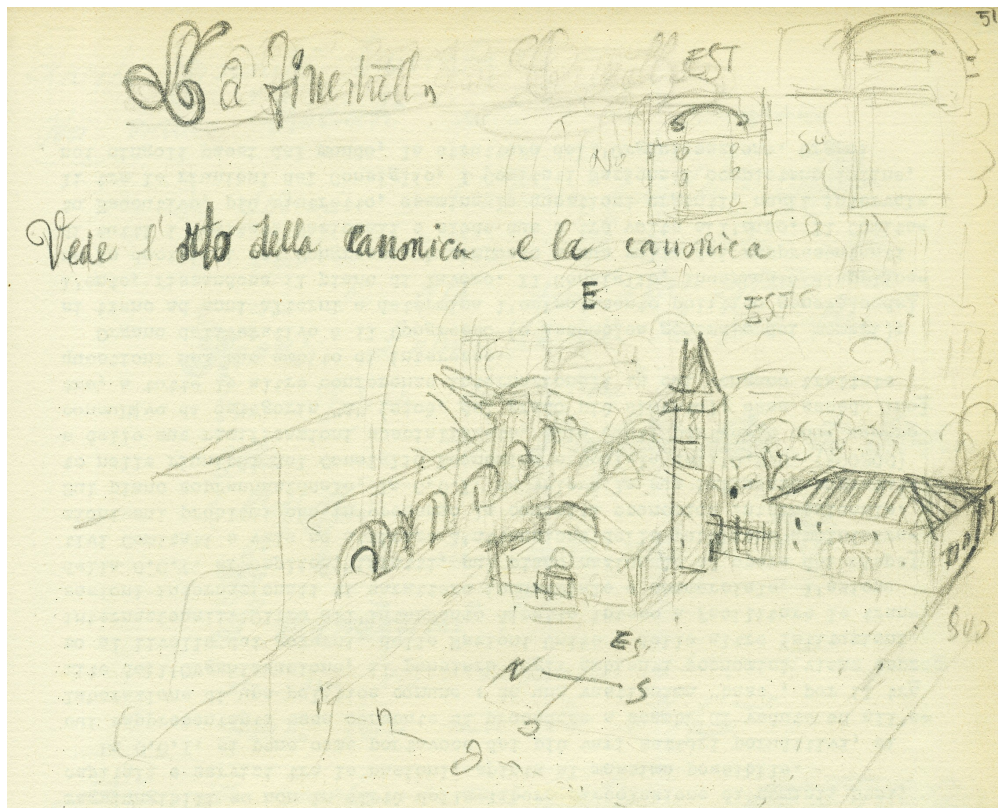 51
La finestra
EST
NO
SU
Vede l'orto della canonica e la canonica
E
EST
SUD
ES
N S
O